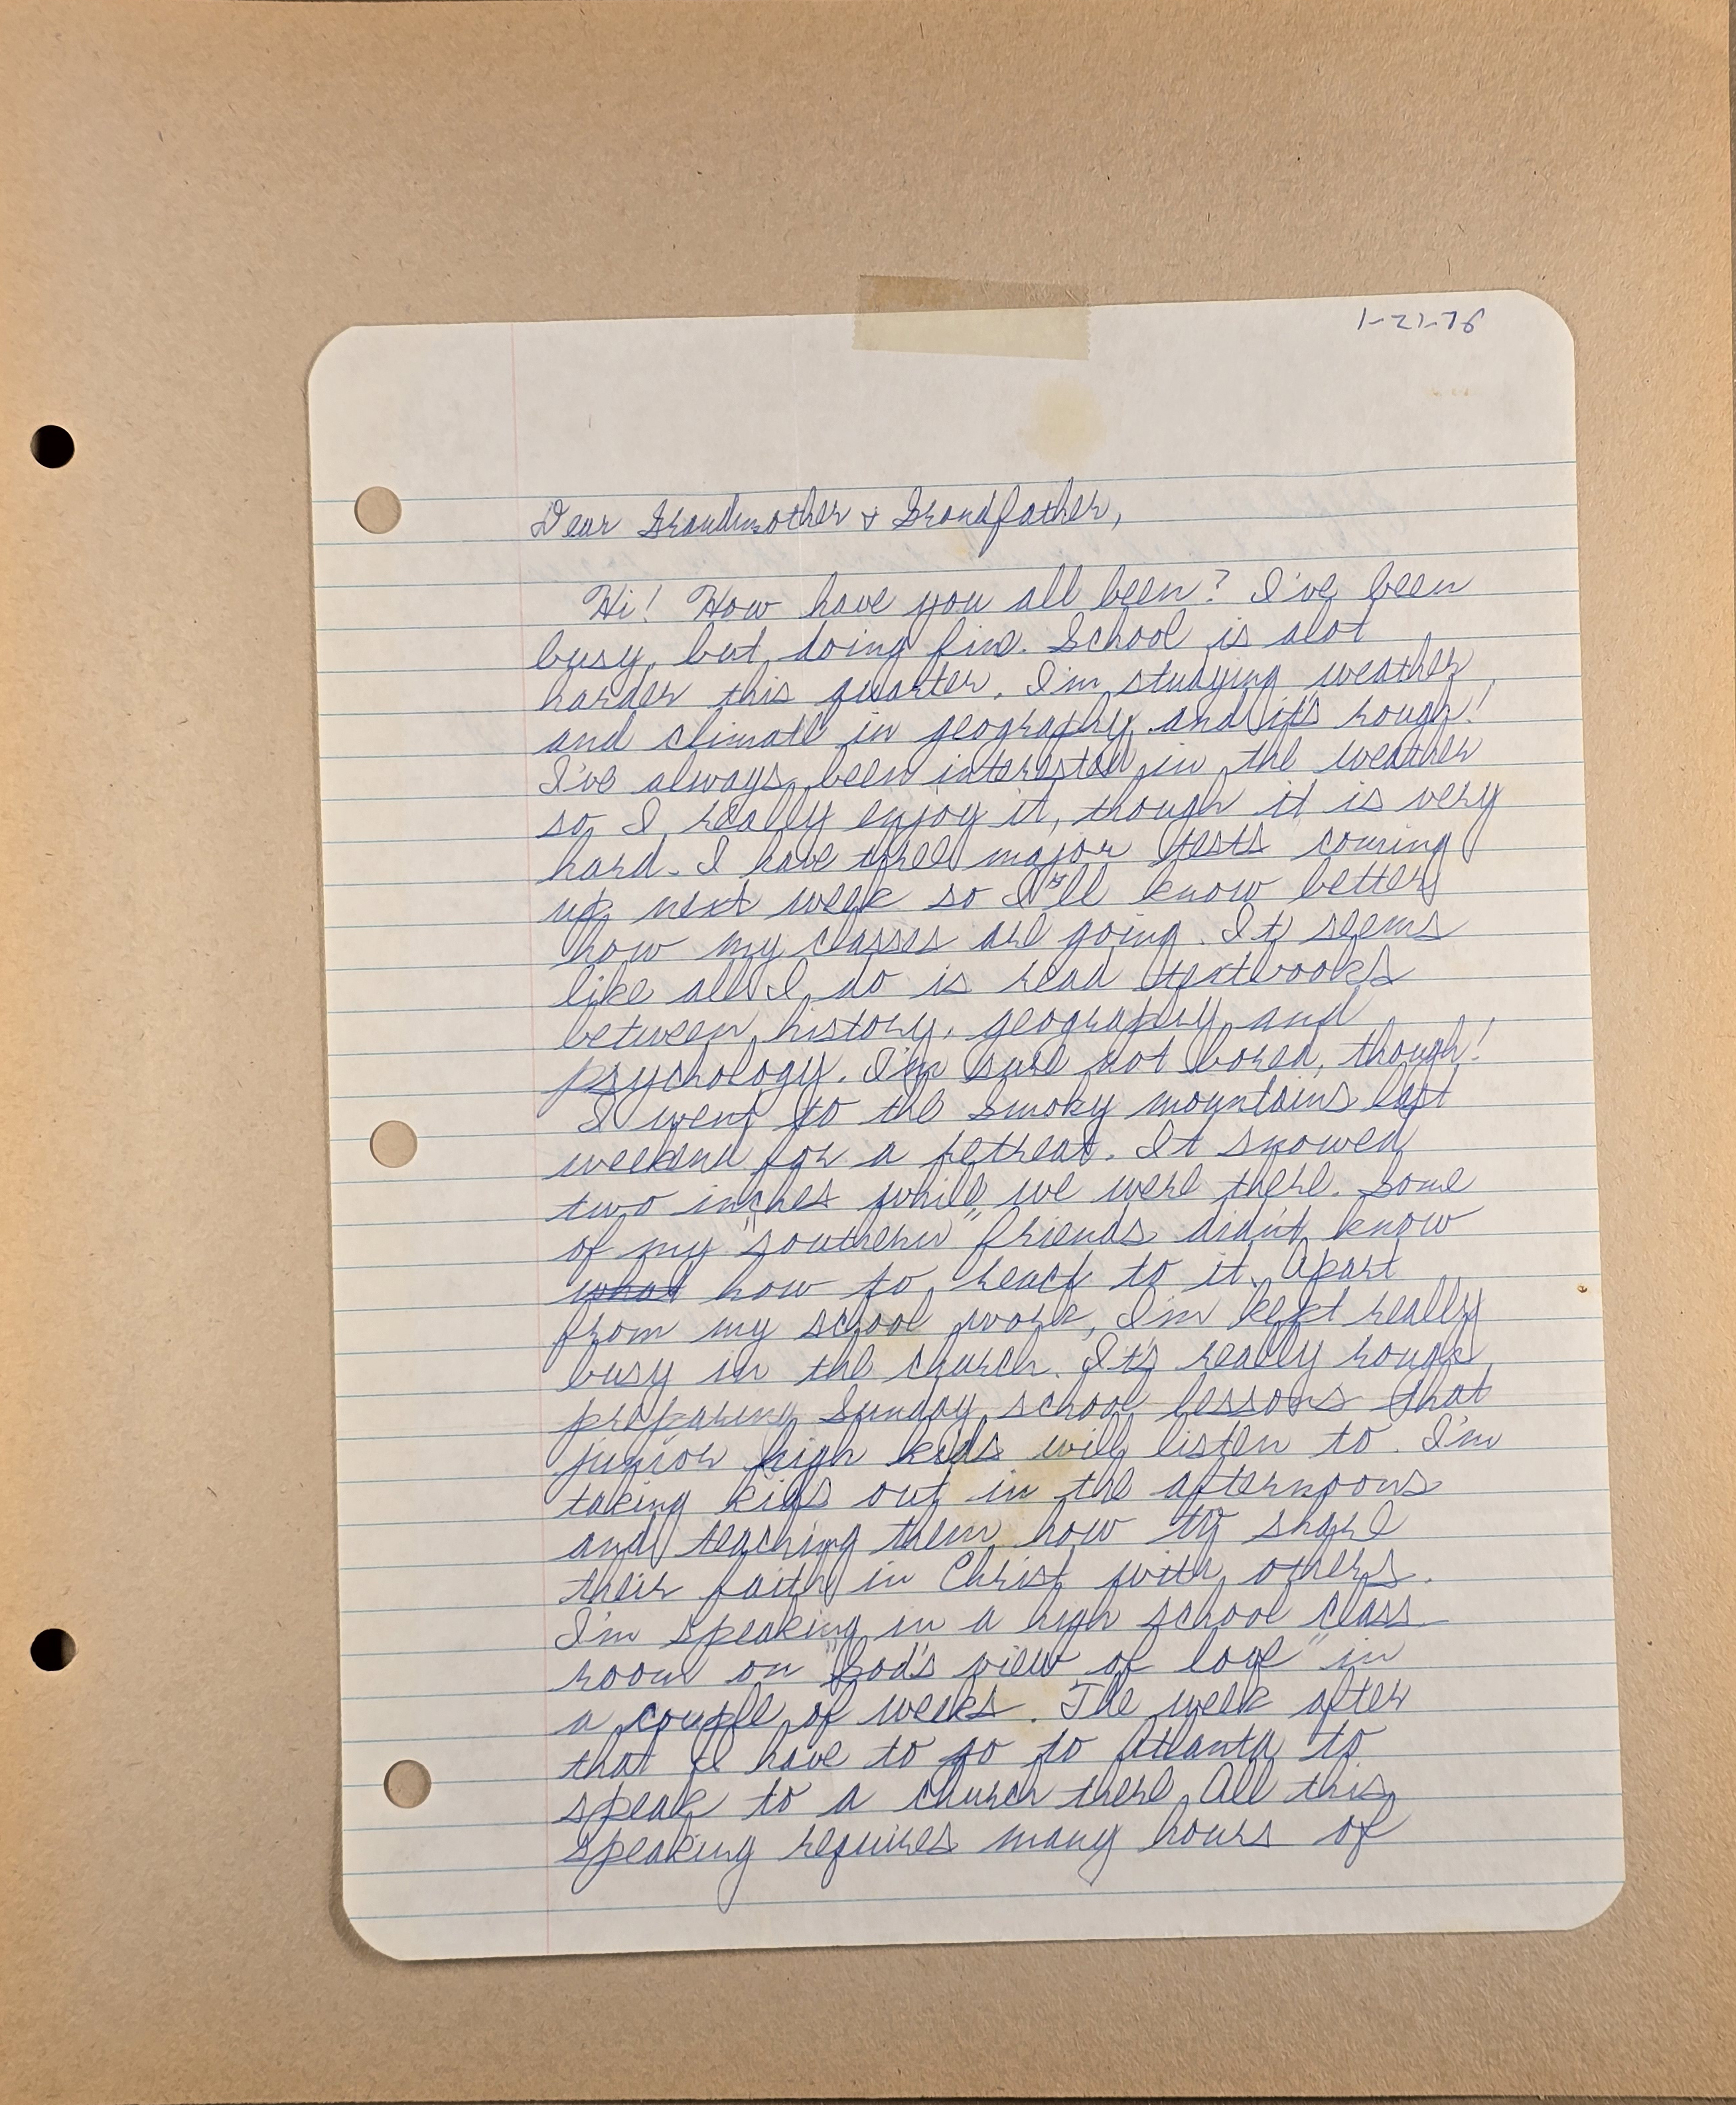 1-21-78
Dear Grandmother & Grandfather,
Hi! How have you all been? I've been
busy, but doing fine. School is alot
harder this quarter. I'm studying weather
and climate in geography and it's rough!
I've always been interested in the weather
so I really enjoy it, though it is very
hard. I have three major tests coming
up next week so I'll know better
how my classes are going. It seems
like all I do is read textbooks
between history, geography and
psychology. I'm sure not bored, though!
I went to the Smoky mountains last
weekend for a retreat. It snowed
two inches while we were there. Some
of my "southern" friends didn't know
what how to react to it. Apart
from my school work, I'm kept really
busy in the church. It's really rough
preparing Sunday school lessons that
junior high kids will listen to. I'm
taking kids out in the afternoons
and teaching them how to share
their faith in Christ with others.
I'm speaking in a high school class
room on "God's view of love" in
a couple of weeks. The week after
that I have to go to Atlanta to
speak to a church there. All this
speaking requires many hours of